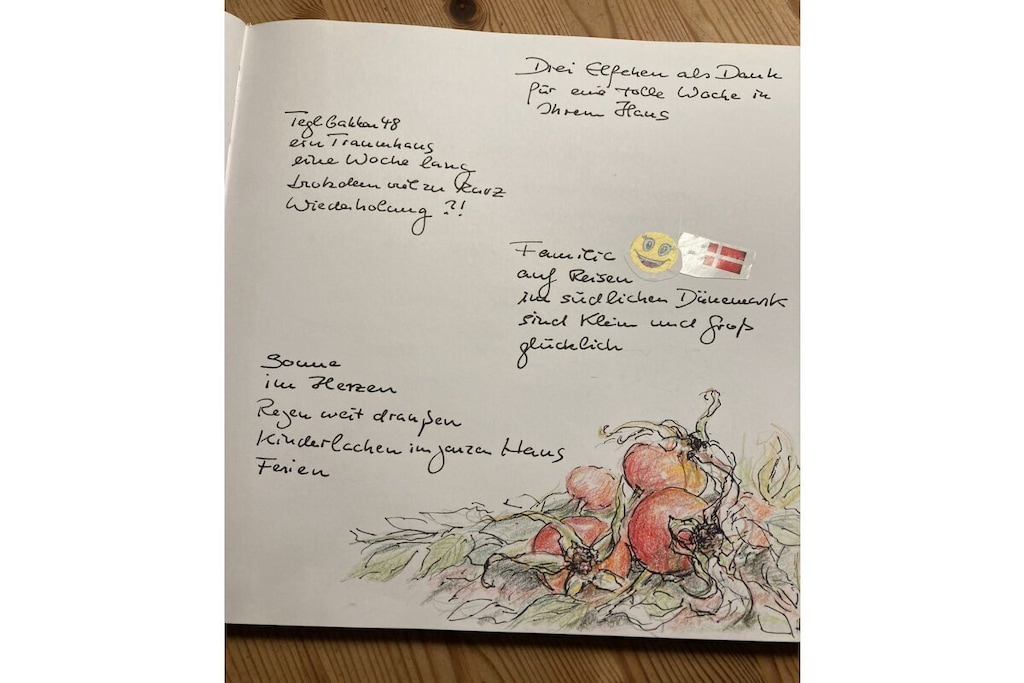 Drei Elfchen als Dank
für eine tolle Woche in
Ihrem Haus
Teglbakken 48
ein Traumhaus
eine Woche lang
trotzdem viel zu kurz
Wiederholung ?!
Familie
auf Reisen
im südlichen Dänemark
sind Klein und Groß
glücklich
Sonne
im Herzen
Regen weit draußen
Kinderlachen im ganzen Haus
Ferien